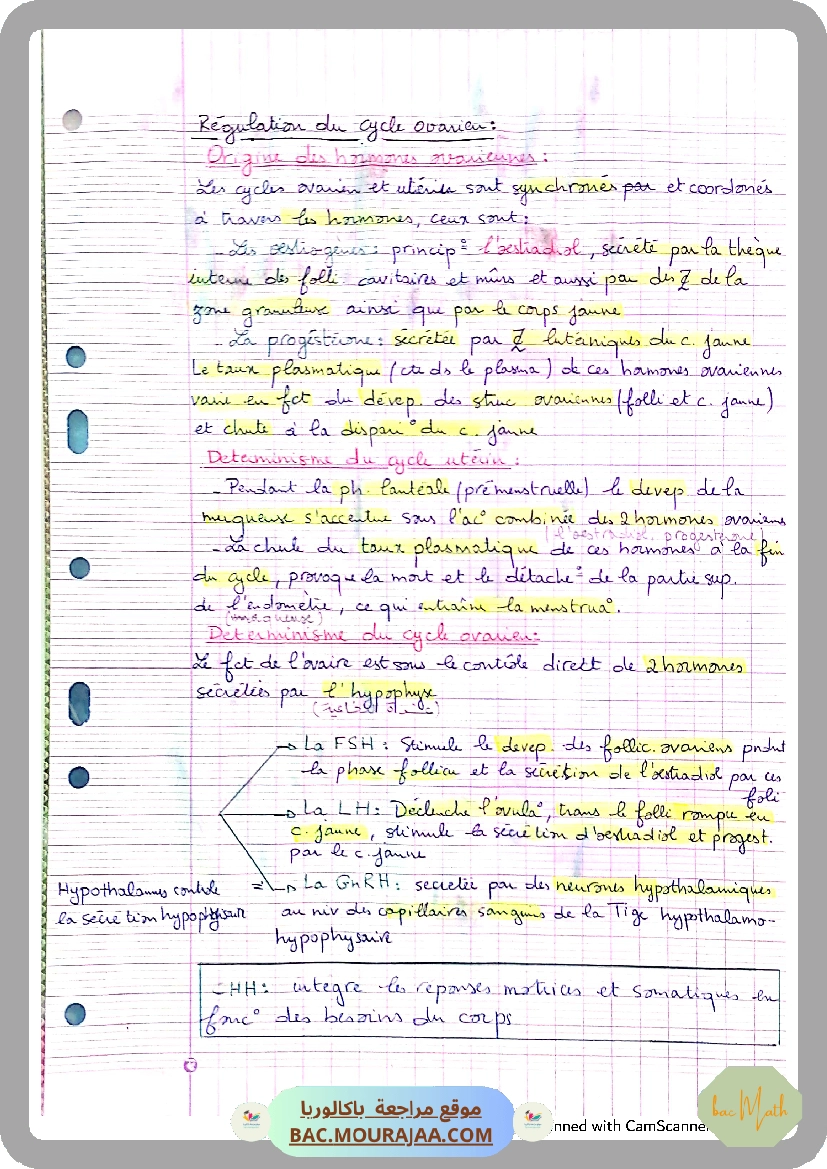 Régulation du cycle ovarien :
Origine des hormones ovariennes :
Les cycles ovarien et utérin sont synchronés par et coordonés
à travers les hormones, ceux sont :
- Les oestrogènes : princip° l'oestradiol, sécrété par la thèque
interne des folli cavitaires et mûrs et aussi par des Z de la
zone granuleuse ainsi que par le corps jaune
- La progésterone : secrétée par Z lutéiniques du c. jaune
Le taux plasmatique (cte ds le plasma) de ces hormones ovariennes
varie en fct du dévep. des struc ovariennes (folli et c. jaune)
et chute à la dispari° du c. jaune
Determinisme du cycle utérin :
- Pendant la ph. lantéale (prémenstruelle) le devep de la
muqueuse s'accentue sous l'ac° combinée des 2 hormones ovariennes
(l'oestradiol, progesterone)
- La chute du taux plasmatique de ces hormones à la fin
du cycle, provoque la mort et le détache° de la partie sup.
de l'endomètre, ce qui entraîne la menstrua°.
(muqueuse)
Determinisme du cycle ovarien :
Le fct de l'ovaire est sous le contôle dirett de 2 hormones
sécrétées par l'hypophyse
(الغدة النخامية)
La FSH : Stimule le devep. des follic. ovariens pndnt
la phase follicu et la sécrétion de l'oestradiol par ces
foli
La LH : Déclenche l'ovula°, trans le folli rompu en
c. jaune, stimule la sécrétion d'oestradiol et progest.
par le c. jaune
Hypothalamus contrôle
la sécrétion hypophysair
=> La GnRH : secretée par des neurones hypothalamiques
au niv des capillaires sanguins de la Tige hypothalamo-
hypophysaire
- HH : integre les réponses motrices et somatiques en
fonc° des besoins du corps
موقع مراجعة باكالوريا
BAC.MOURAJAA.COM
nned with CamScanner
bac Math